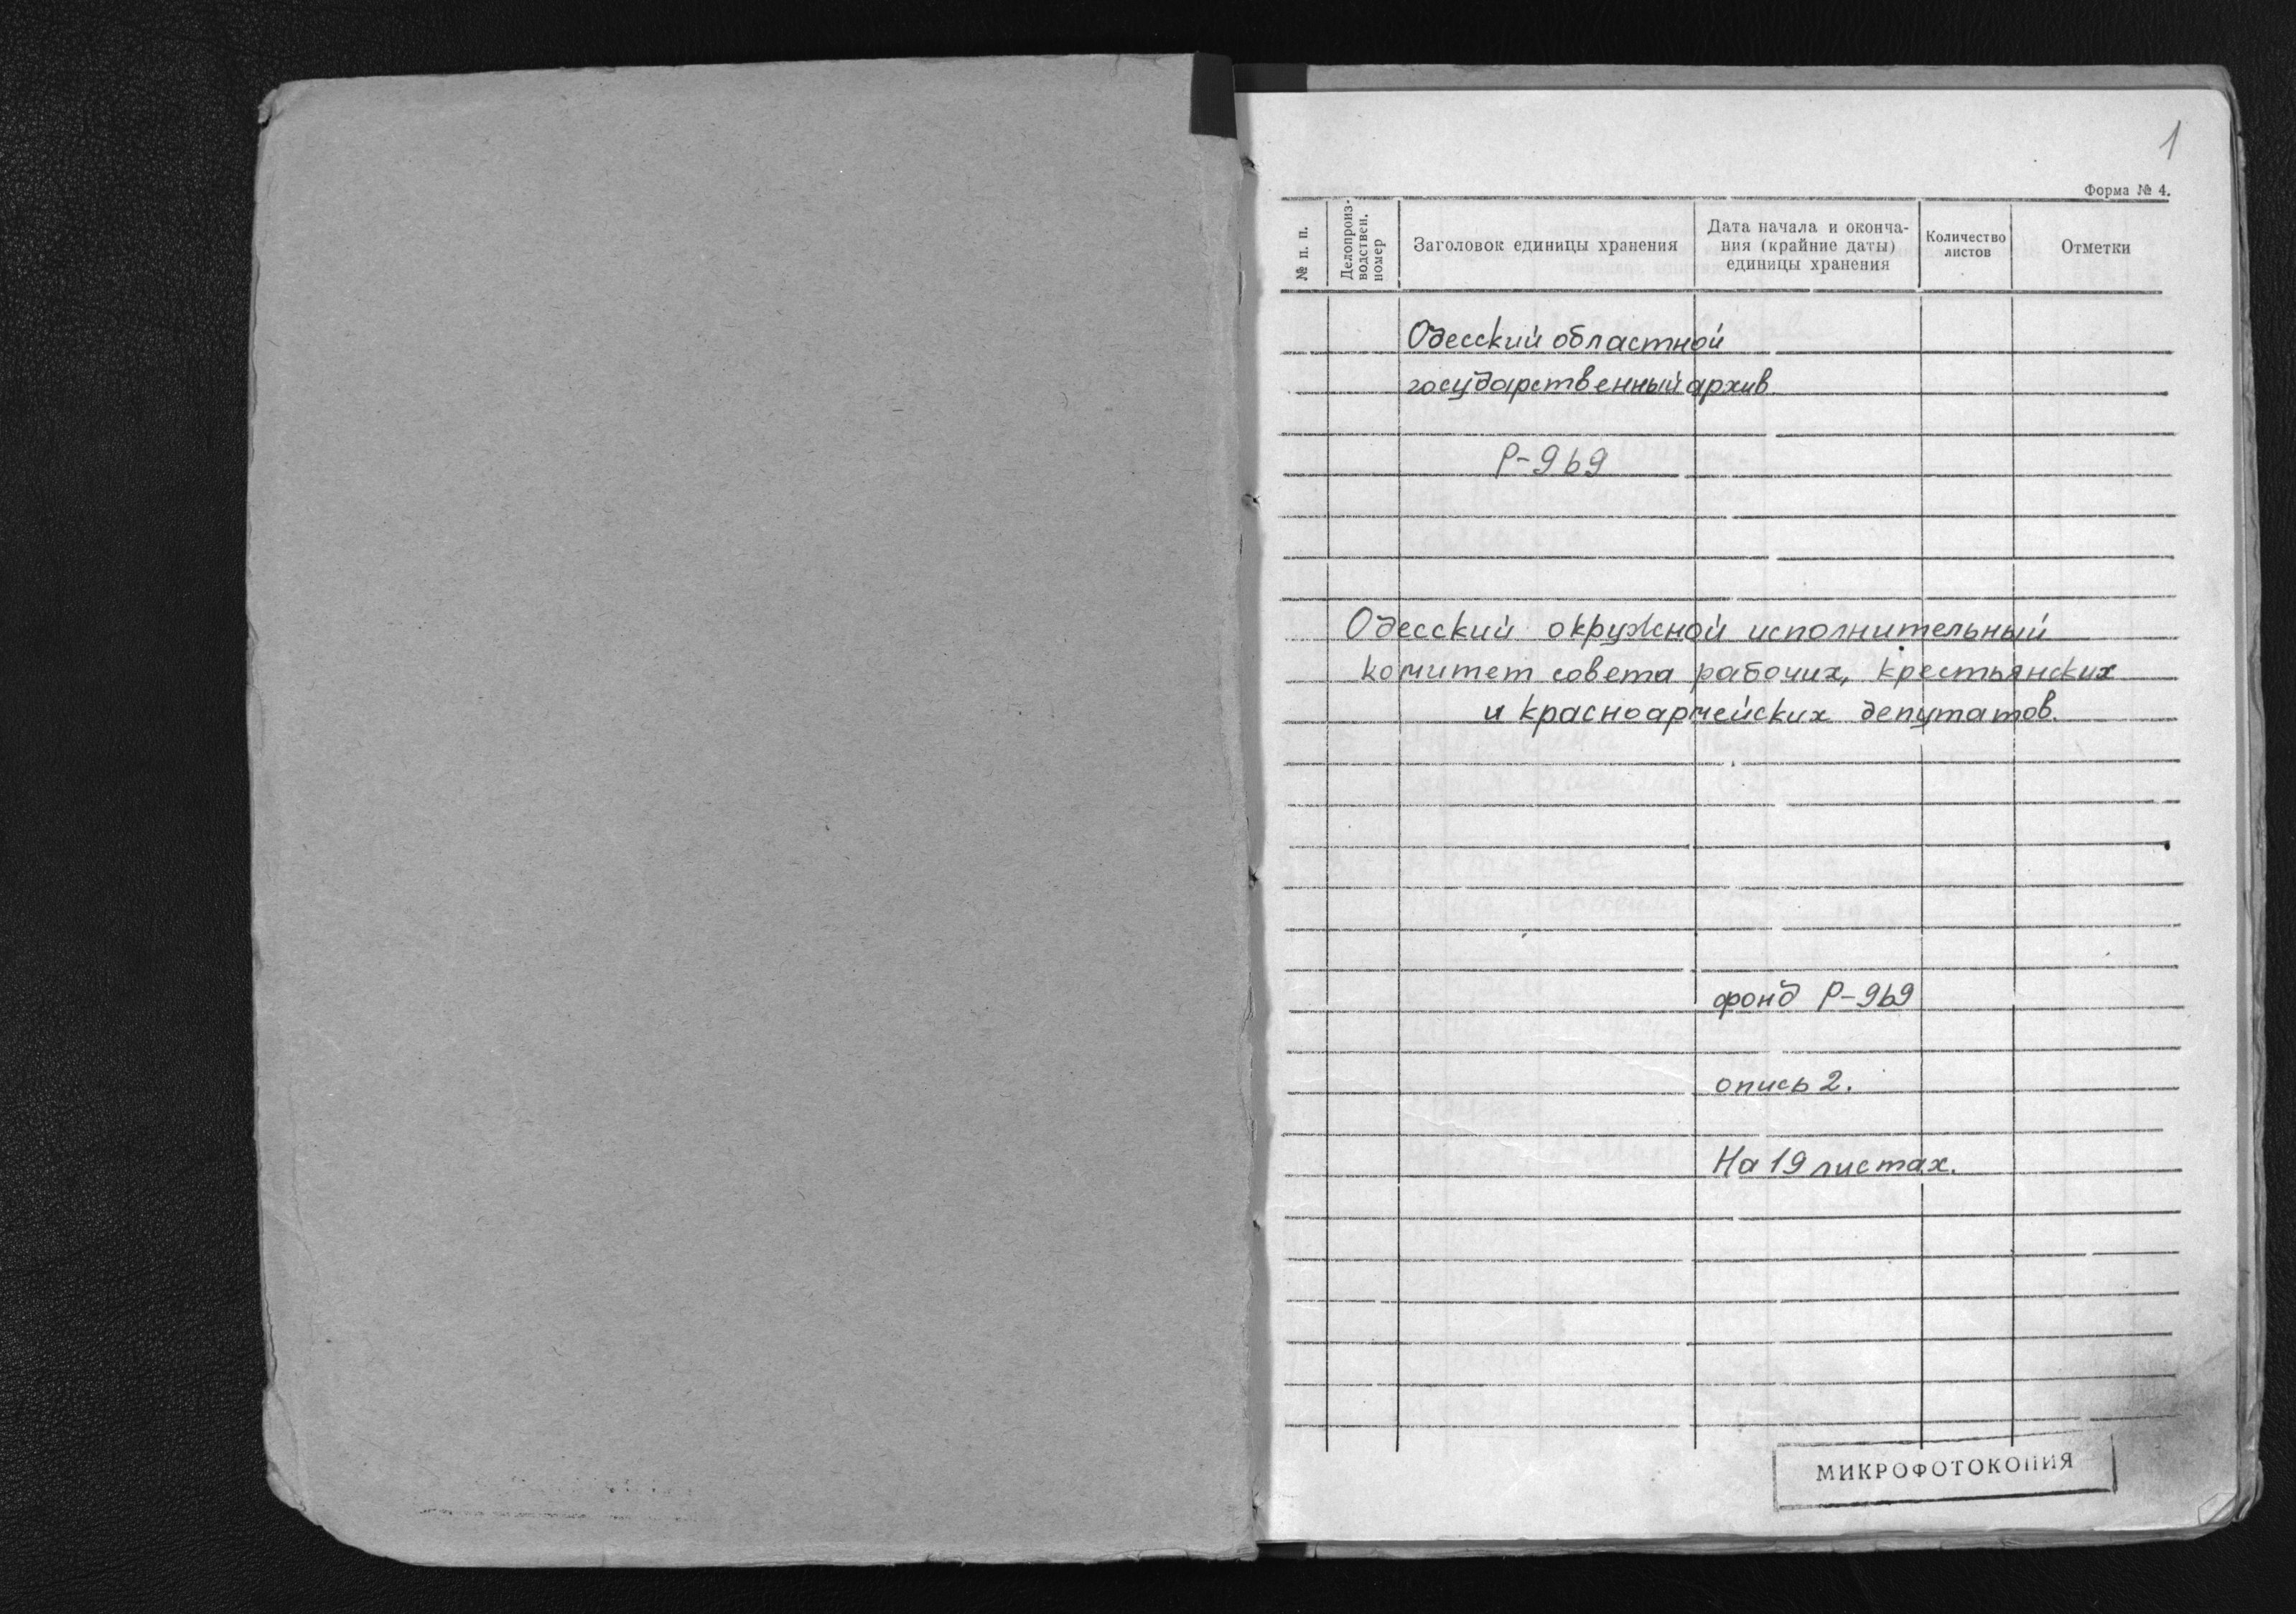 1
Форма № 4.
№ п. п.
Делопроиз-
водствен.
номер
Заголовок единицы хранения
Дата начала и оконча-
ния (крайние даты)
единицы хранения
Количество
листов
Отметки
Одесский областной
государственный архив.
Р-969
Одесский окружной исполнительный
комитет совета рабочих, крестьянских
и красноармейских депутатов.
фонд Р-969
опись 2.
На 19 листах.
МИКРОФОТОКОПИЯ